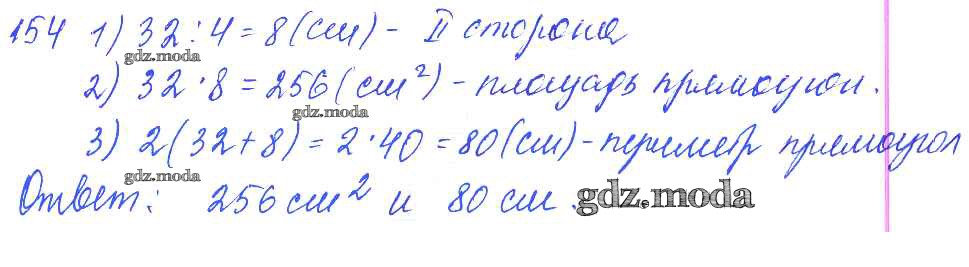 154 1) 32 : 4 = 8 (см) - II сторона
gdz.moda
2) 32 · 8 = 256 (см²) - площадь прямоугол.
gdz.moda
3) 2 (32 + 8) = 2 · 40 = 80 (см) - периметр прямоугол
gdz.moda
Ответ: 256 см² и 80 см.
gdz.moda